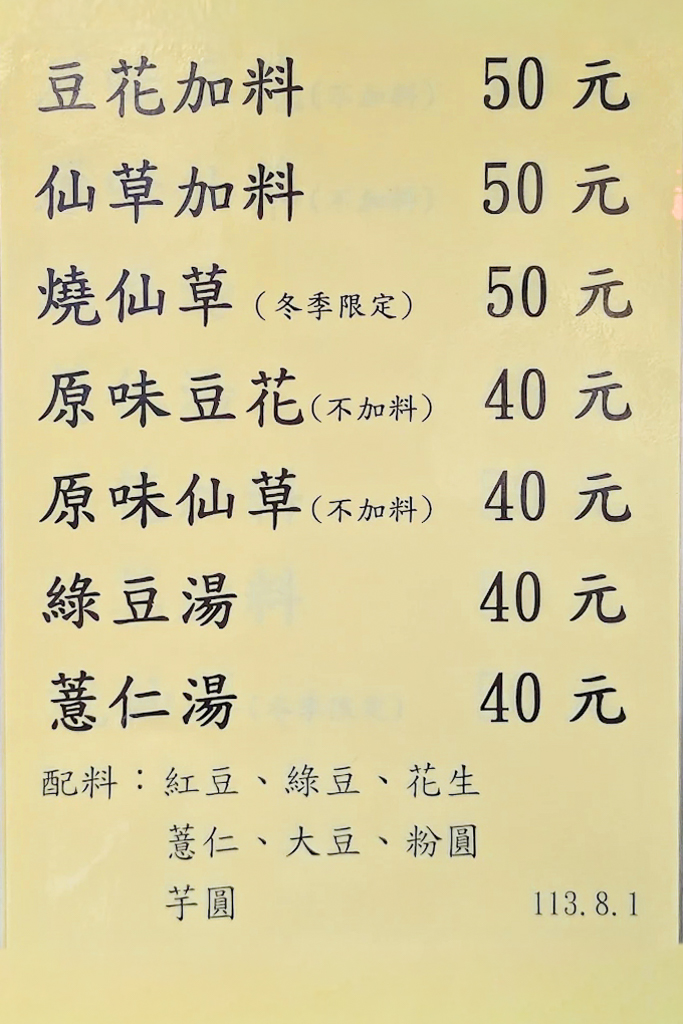 豆花加料 50 元
仙草加料 50 元
燒仙草(冬季限定) 50 元
原味豆花(不加料) 40 元
原味仙草(不加料) 40 元
綠豆湯 40 元
薏仁湯 40 元
配料:紅豆、綠豆、花生
薏仁、大豆、粉圓
芋圓 113.8.1